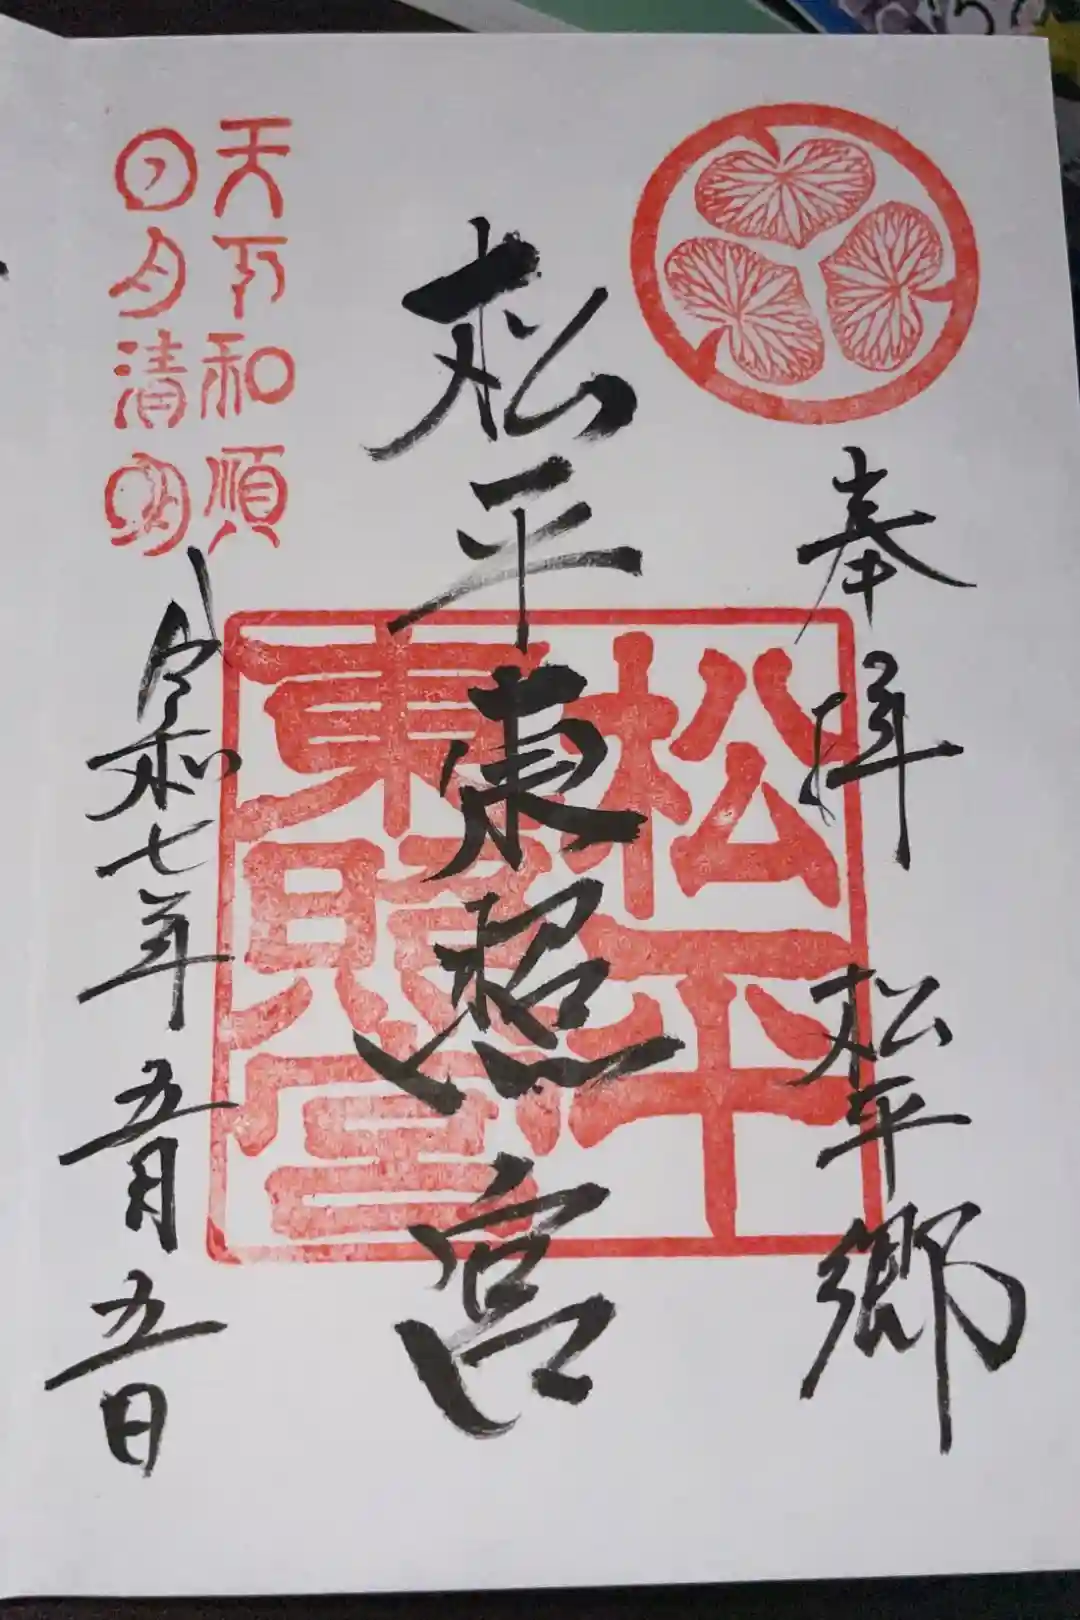 奉拝
松平郷
松平東照宮
松平
東照宮
天下和順
日月清明
令和七年五月五日